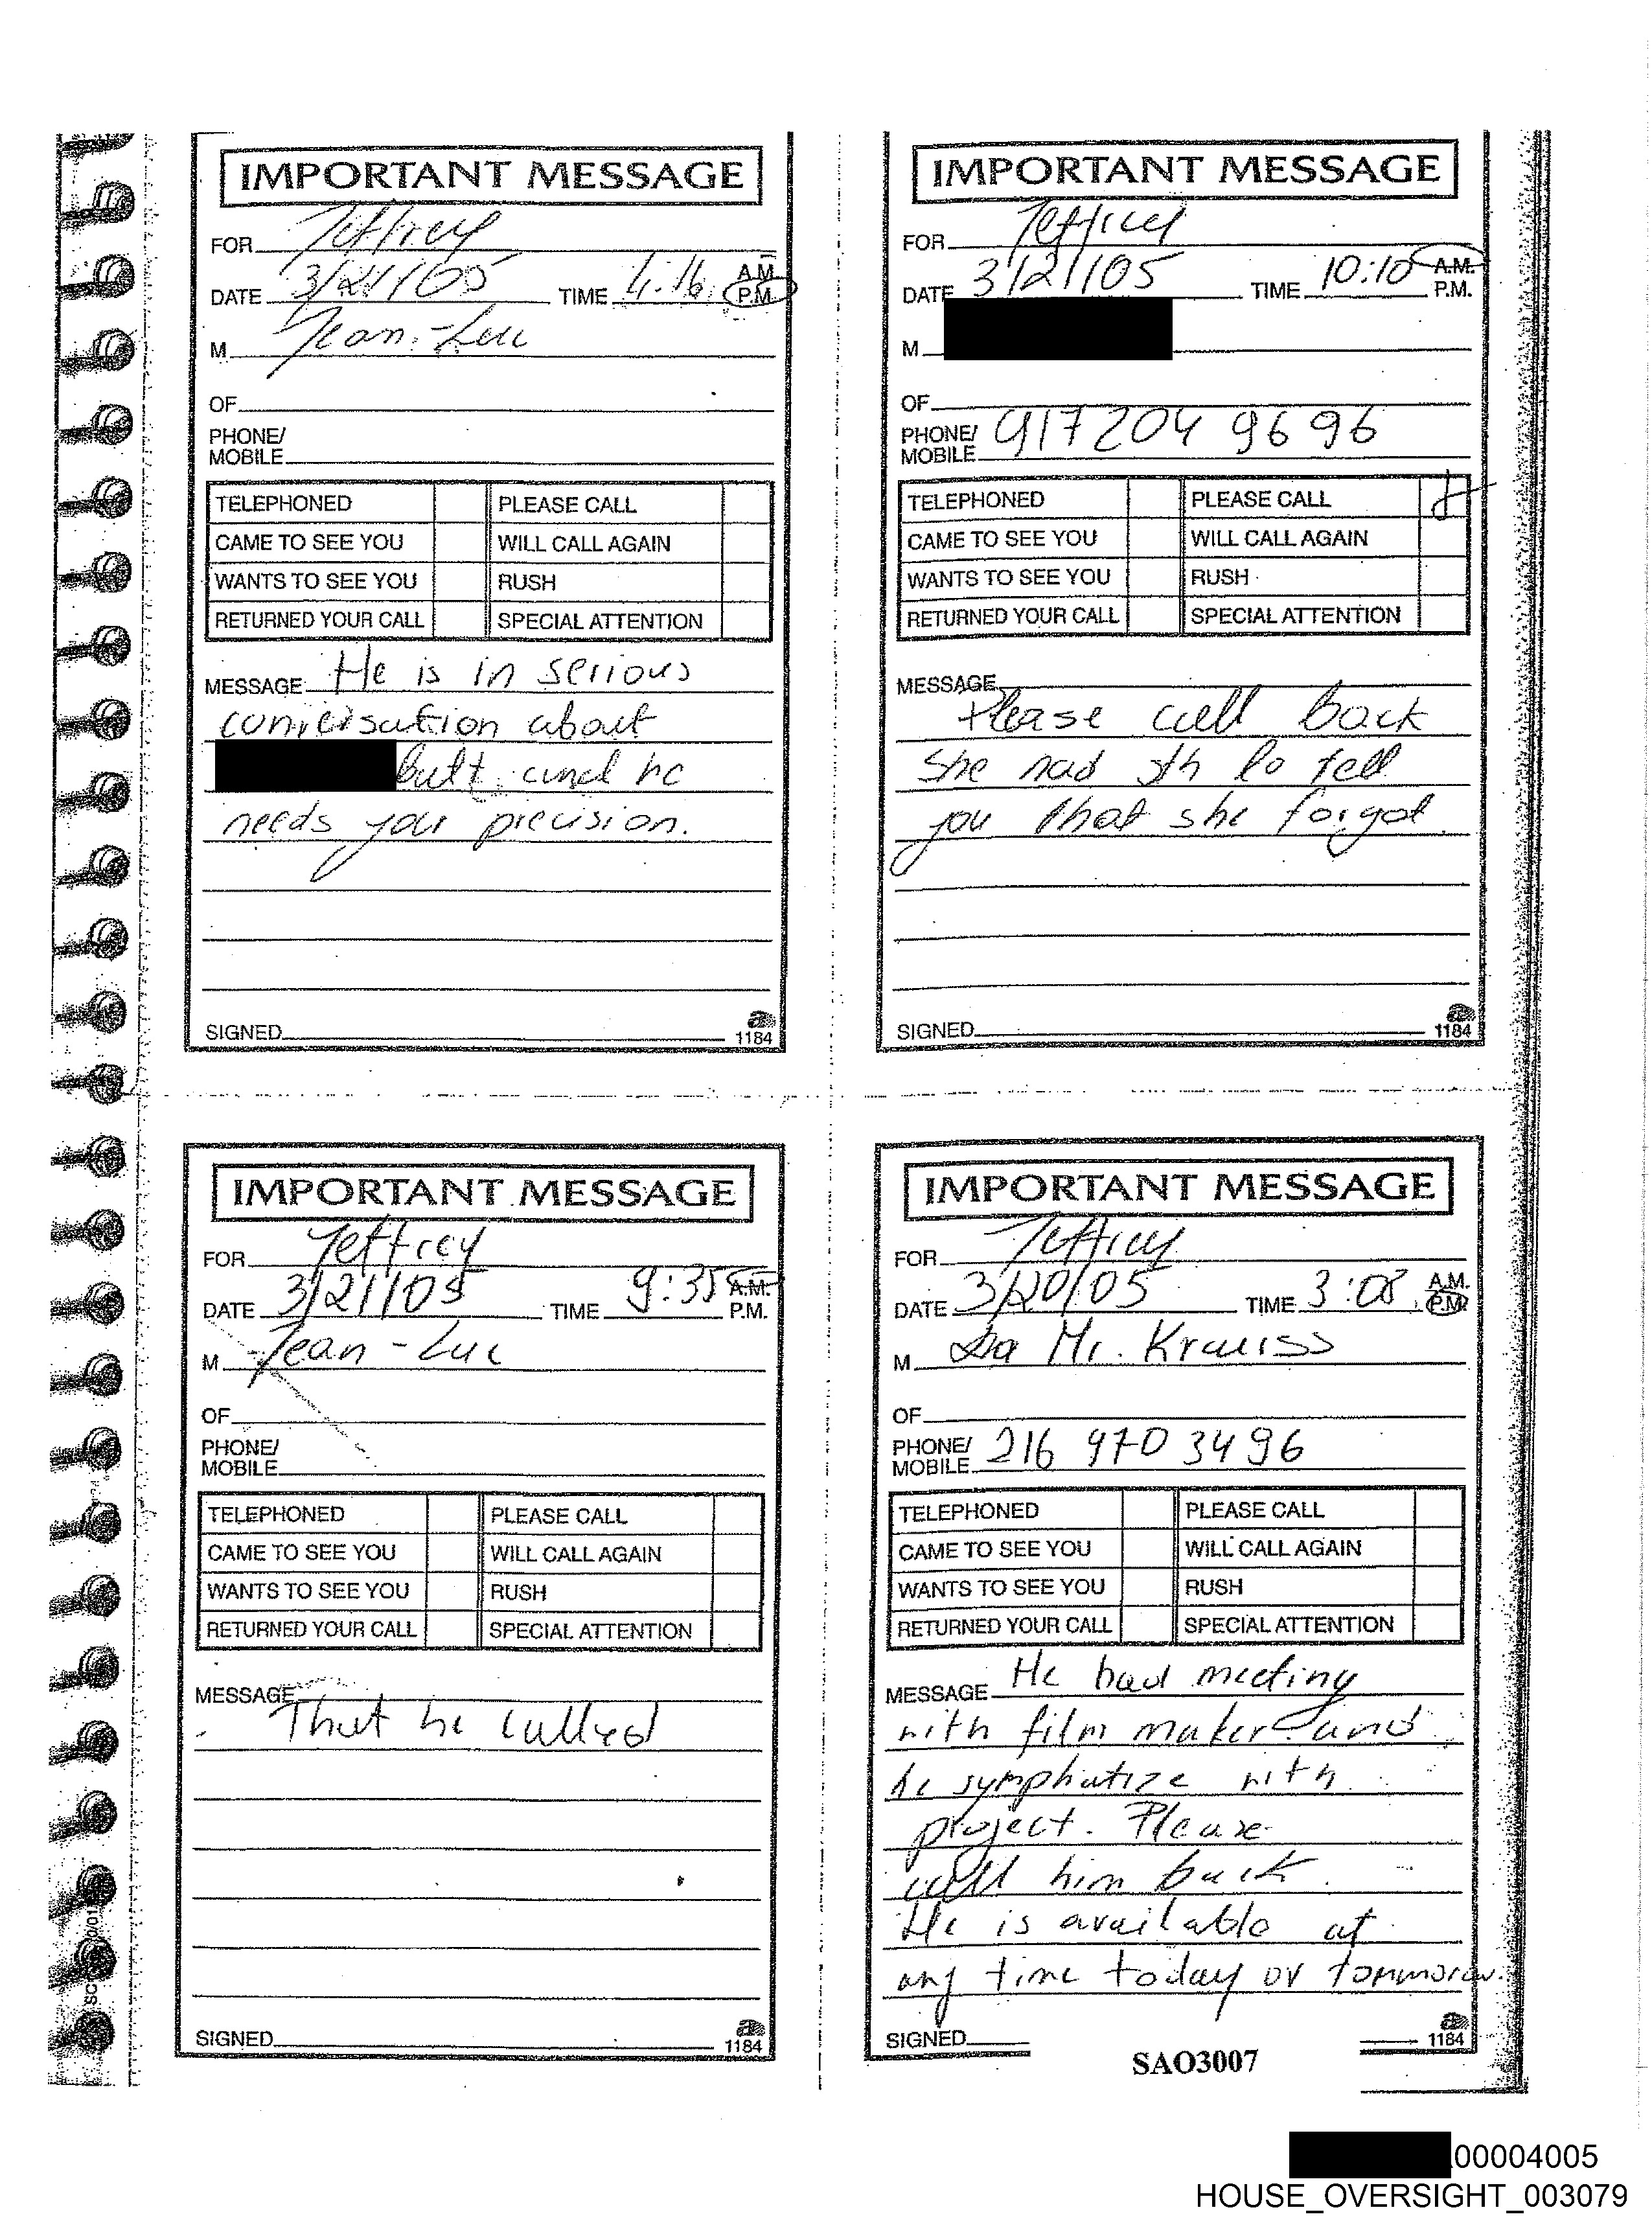 IMPORTANT MESSAGE
FOR Jeffrey
DATE 3/21/05 TIME 4:16 A.M. P.M.
M Jean-Luc
OF
PHONE/
MOBILE
TELEPHONED PLEASE CALL
CAME TO SEE YOU WILL CALL AGAIN
WANTS TO SEE YOU RUSH
RETURNED YOUR CALL SPECIAL ATTENTION
MESSAGE He is in serious
conversation about
butt and he
needs your precision.
SIGNED
1184
IMPORTANT MESSAGE
FOR Jeffrey
DATE 3/21/05 TIME 10:10 A.M. P.M.
M
OF
PHONE/
MOBILE 917 204 9696
TELEPHONED PLEASE CALL
CAME TO SEE YOU WILL CALL AGAIN
WANTS TO SEE YOU RUSH
RETURNED YOUR CALL SPECIAL ATTENTION
MESSAGE
Please call back
She had sth to tell
you that she forgot.
SIGNED
1184
IMPORTANT MESSAGE
FOR Jeffrey
DATE 3/21/05 TIME 9:35 A.M. P.M.
M Jean-Luc
OF
PHONE/
MOBILE
TELEPHONED PLEASE CALL
CAME TO SEE YOU WILL CALL AGAIN
WANTS TO SEE YOU RUSH
RETURNED YOUR CALL SPECIAL ATTENTION
MESSAGE
That he called
SIGNED
1184
IMPORTANT MESSAGE
FOR Jeffrey
DATE 3/20/05 TIME 3:08 A.M. P.M.
M Mr. Krauss
OF
PHONE/
MOBILE 216 970 3496
TELEPHONED PLEASE CALL
CAME TO SEE YOU WILL CALL AGAIN
WANTS TO SEE YOU RUSH
RETURNED YOUR CALL SPECIAL ATTENTION
MESSAGE He had meeting
with film maker and
he symphatize with
project. Please
call him back.
He is available at
any time today or tommorow.
SIGNED
1184
SAO3007
00004005
HOUSE_OVERSIGHT_003079